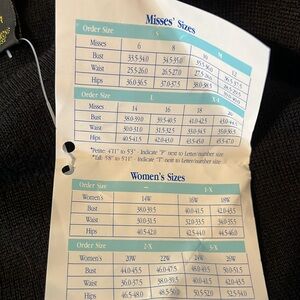 Misses' Sizes
Order Size S M
Misses 6 8
Bust 33.5-34.0 34.5-35.0
Waist 25.5-26.0 26.5-27.0
Hips 36.0-36.5 37.5-38.0
Order Size L X-L
Misses 14 16 18
Bust 38.0-39.0 39.5-40.5 41.0-42.5
Waist 30.0-31.0 31.5-32.5 33.0-34.5
Hips 40.5-41.5 42.0-43.0
*Petite: 4'11" to 5'3" - Indicate "P" next to Letter/number size
*Tall: 5'8" to 5'11" - Indicate "T" next to Letter/number size
Women's Sizes
Order Size — 1-X
Women's 14W 16W 18W
Bust 38.0-39.5 40.0-41.5 42.0-43.5
Waist 30.0-31.5 32.0-33.5 34.0-35.5
Hips 40.5-42.0 42.5-44.0 44.5-46.0
Order Size 2-X 3-X
Women's 20W 22W 24W 26W
Bust 44.0-45.5 46.0-47.5 48.0-49.5 50.0-51.5
Waist 36.0-37.5 38.0-39.5 40.0-41.5 42.0-43.5
Hips 46.5-48.0 48.5-50.0 50.5-52.0